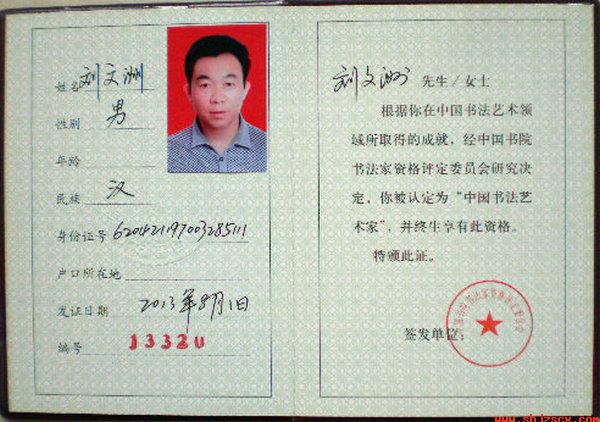 姓名 刘文洲
性别 男
年龄
民族 汉
身份证号 620421197003285111
户口所在地
发证日期 2013年8月1日
编号 13320
刘文洲 先生/女士
根据你在中国书法艺术领
域所取得的成就，经中国书院
书法家资格评定委员会研究决
定，你被认定为“中国书法艺
术家”，并终生享有此资格。
特颁此证。
签发单位：
www.sbjzscx.com